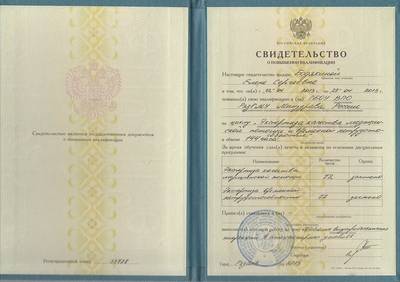 Свидетельство является государственным документом
о повышении квалификации
Регистрационный номер
РОССИЙСКАЯ ФЕДЕРАЦИЯ
СВИДЕТЕЛЬСТВО
О ПОВЫШЕНИИ КВАЛИФИКАЦИИ
Настоящее свидетельство выдано
Елене Сергеевне
в том, что он(а) с 02 04 2013 г. по 25 04 2013 г.
повысил(а) свою квалификацию в (на) ГБОУ ВПО
РязГМУ Минздрава России
по циклу «Экспертиза качества медицин-
ской помощи и временной нетрудоспо-
собности»
в объеме 144 часа
За время обучения сдал(а) зачеты и экзамены по основным дисциплинам
программы:
Наименование
Количество
часов
Оценка
Экспертиза качества
медицинской помощи
72 зачтено
Экспертиза временной
нетрудоспособности
72 зачтено
Прошел(а) стажировку в (на)
выполнил(а) итоговую работу на тему
Город Рязань 2013